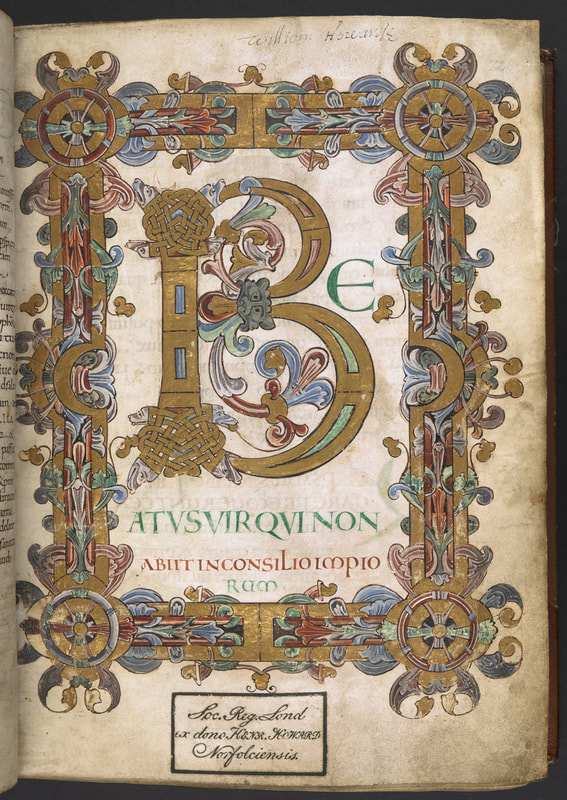 William Howarde
BE
ATVS VIR QVI NON
ABIIT IN CONSILIO IMPIO
RUM
Soc. Reg. Lond
ex dono HENR. HOWARD
Norfolciensis.